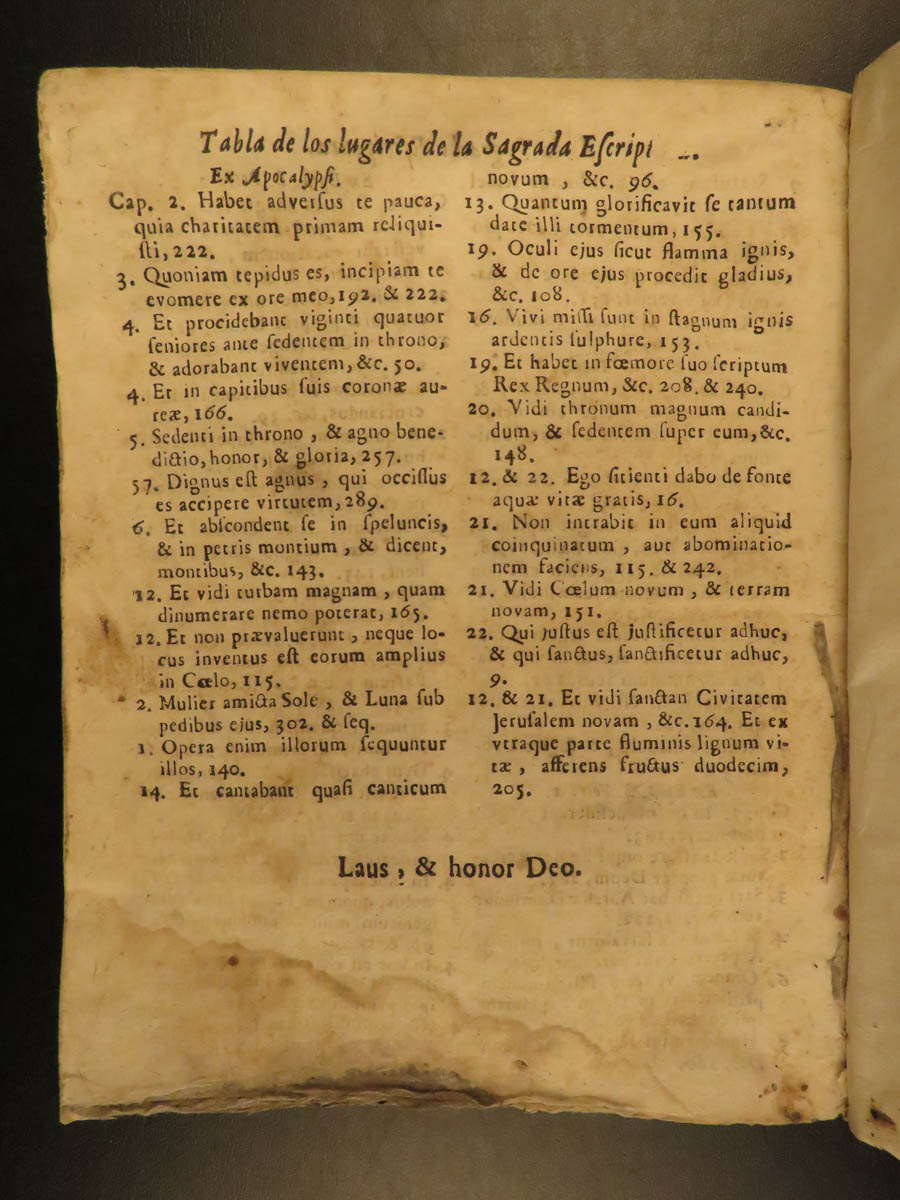 Tabla de los lugares de la Sagrada Eſcript
Ex Apocalypſi.
Cap. 2. Habet adverſus te pauca,
quia charitatem primam reliqui-
ſti, 222.
3. Quoniam tepidus es, incipiam te
evomere ex ore meo, 192. & 222.
4. Et procidebant viginti quatuor
ſeniores ante ſedentem in throno,
& adorabant viventem, &c. 50.
4. Et in capitibus ſuis coronæ au-
reæ, 166.
5. Sedenti in throno, & agno bene-
dictio, honor, & gloria, 257.
57. Dignus eſt agnus, qui occiſſus
es accipere virtutem, 289.
6. Et abſcondent ſe in ſpeluncis,
& in petris montium, & dicent,
montibus, &c. 143.
12. Et vidi turbam magnam, quam
dinumerare nemo poterat, 165.
12. Et non prævaluerunt, neque lo-
cus inventus eſt eorum amplius
in Cœlo, 115.
2. Mulier amicta Sole, & Luna ſub
pedibus ejus, 302. & ſeq.
1. Opera enim illorum ſequuntur
illos, 140.
14. Et cantabant quaſi canticum
novum, &c. 96.
13. Quantum glorificavit ſe tantum
date illi tormentum, 155.
19. Oculi ejus ſicut flamma ignis,
& de ore ejus procedit gladius,
&c. 108.
16. Vivi miſſi ſunt in ſtagnum ignis
ardentis ſulphure, 153.
19. Et habet in fœmore ſuo ſcriptum
Rex Regnum, &c. 208. & 240.
20. Vidi thronum magnum candi-
dum, & ſedentem ſuper eum, &c.
148.
12. & 22. Ego ſitienti dabo de fonte
aquæ vitæ gratis, 16.
21. Non intrabit in eum aliquid
coinquinatum, aut abominatio-
nem faciens, 115. & 242.
21. Vidi Cœlum novum, & terram
novam, 151.
22. Qui juſtus eſt juſtificetur adhuc,
& qui ſanctus, ſanctificetur adhuc,
9.
12. & 21. Et vidi ſanctan Civitatem
Jeruſalem novam, &c. 164. Et ex
vtraque parte fluminis lignum vi-
tæ, afferens fructus duodecim,
205.
Laus, & honor Deo.